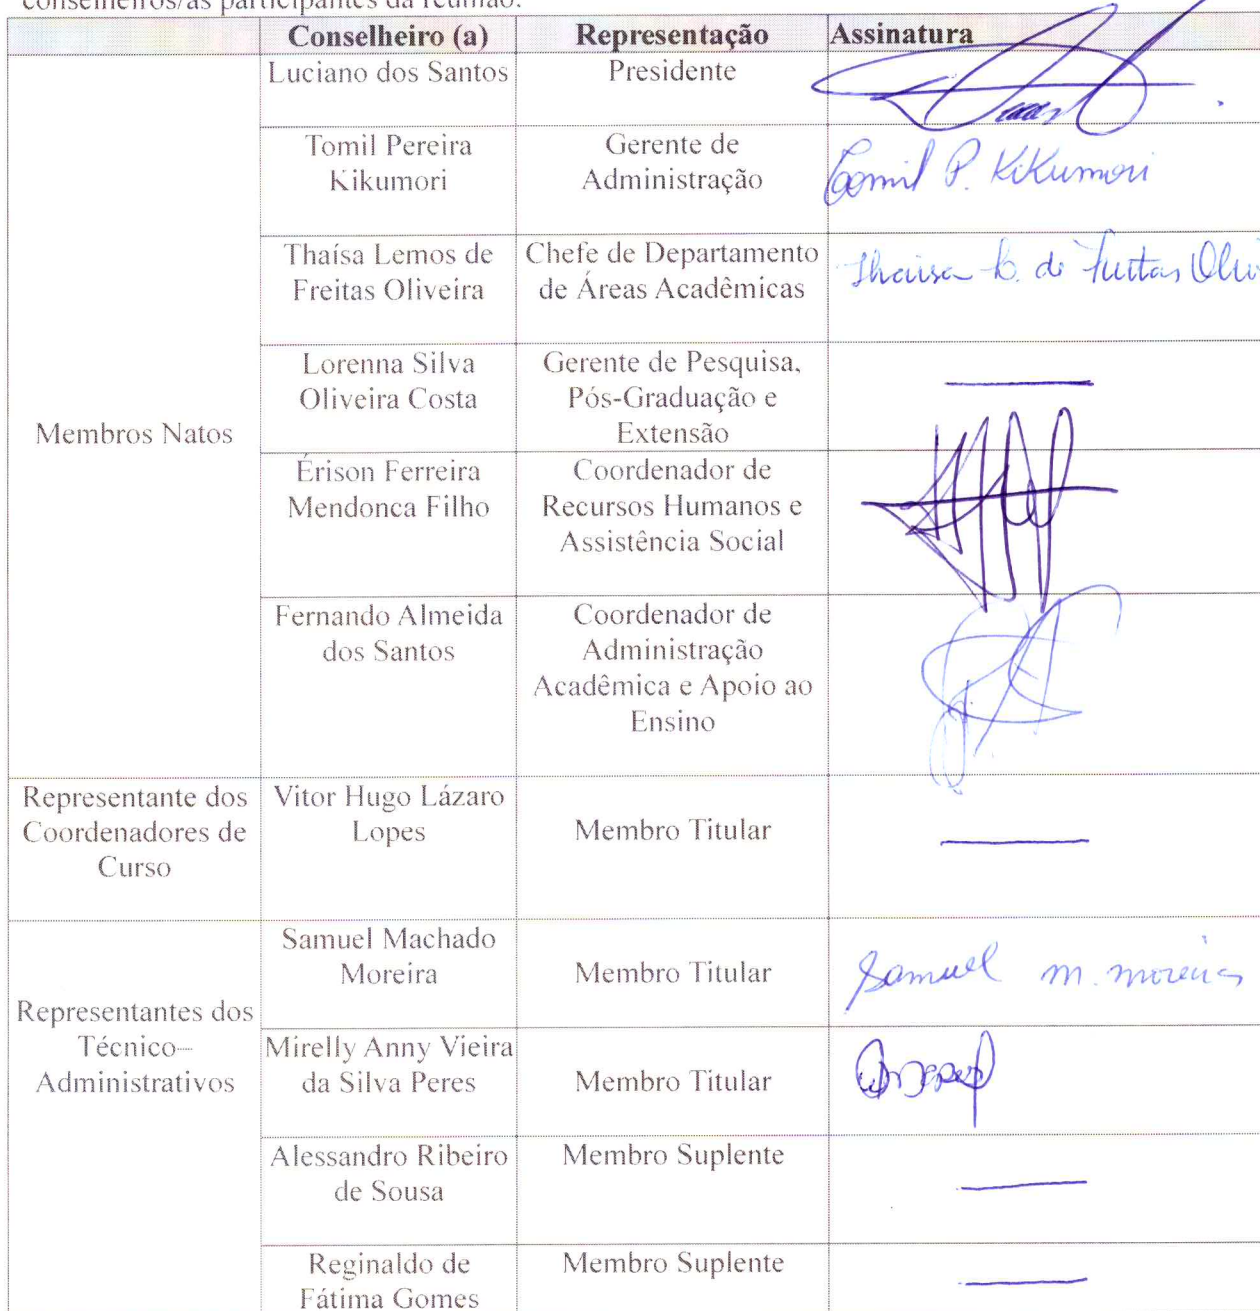 conselheiros/as participantes da reunião.
Conselheiro (a) Representação Assinatura
Membros Natos
Luciano dos Santos
Presidente
Tomil Pereira
Kikumori
Gerente de
Administração
Tomil P. Kikumori
Thaísa Lemos de
Freitas Oliveira
Chefe de Departamento
de Áreas Acadêmicas
Thaísa L. de Freitas Olivei
Lorenna Silva
Oliveira Costa
Gerente de Pesquisa,
Pós-Graduação e
Extensão
Érison Ferreira
Mendonca Filho
Coordenador de
Recursos Humanos e
Assistência Social
Fernando Almeida
dos Santos
Coordenador de
Administração
Acadêmica e Apoio ao
Ensino
Representante dos
Coordenadores de
Curso
Vitor Hugo Lázaro
Lopes
Membro Titular
Representantes dos
Técnico–
Administrativos
Samuel Machado
Moreira
Membro Titular
Samuel M. Moreira
Mirelly Anny Vieira
da Silva Peres
Membro Titular
Alessandro Ribeiro
de Sousa
Membro Suplente
Reginaldo de
Fátima Gomes
Membro Suplente